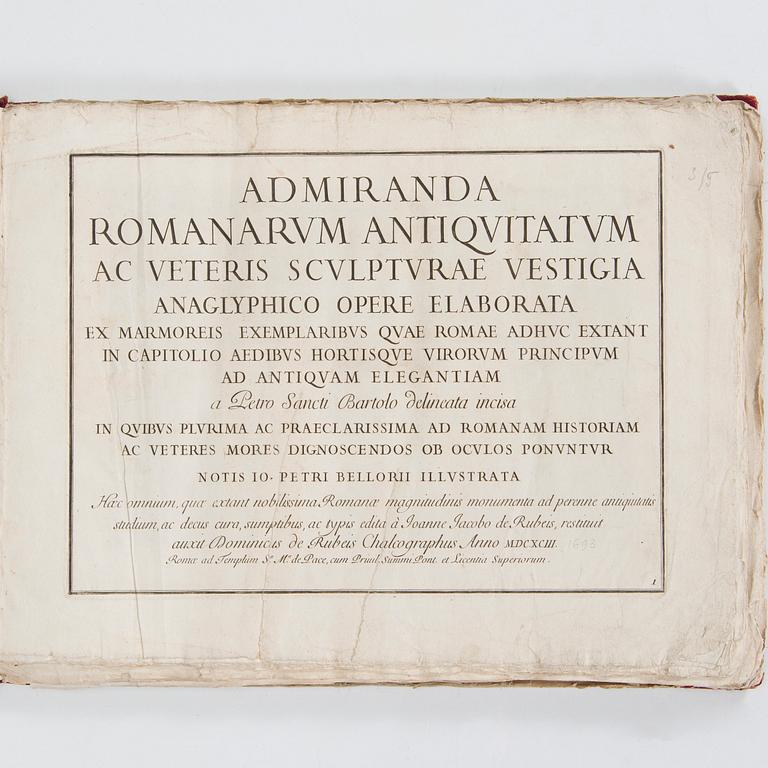 ADMIRANDA
ROMANARVM ANTIQVITATVM
AC VETERIS SCVLPTVRAE VESTIGIA
ANAGLYPHICO OPERE ELABORATA
EX MARMOREIS EXEMPLARIBVS QVAE ROMAE ADHVC EXTANT
IN CAPITOLIO AEDIBVS HORTISQVE VIRORVM PRINCIPVM
AD ANTIQVAM ELEGANTIAM
a Petro Sancti Bartolo delineata incisa
IN QVIBVS PLVRIMA AC PRAECLARISSIMA AD ROMANAM HISTORIAM
AC VETERES MORES DIGNOSCENDOS OB OCVLOS PONVNTVR
NOTIS IO. PETRI BELLORII ILLVSTRATA
Hæc omnium, quæ extant nobilissima Romanæ magnitudinis monumenta ad perenne antiquitatis
studium, ac decus cura, sumptibus, ac typis edita à Ioanne Iacobo de Rubeis, restituit
auxit Dominicus de Rubeis Chalcographus Anno MDCXCIII. 1693
Romæ ad Templum S.ae M.ae de Pace, cum Priuil. Summi Pont. et Licentia Superiorum.
1
3/5